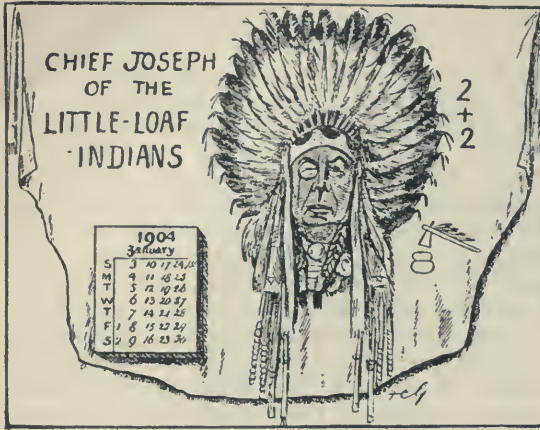 CHIEF JOSEPH
OF THE
LITTLE-LOAF
INDIANS
2
+
2
1904
January
S 3 10 17 24
M 4 11 18 25
T 5 12 19 26
W 6 13 20 27
T 7 14 21 28
F 1 8 15 22 29
S 2 9 16 23 30